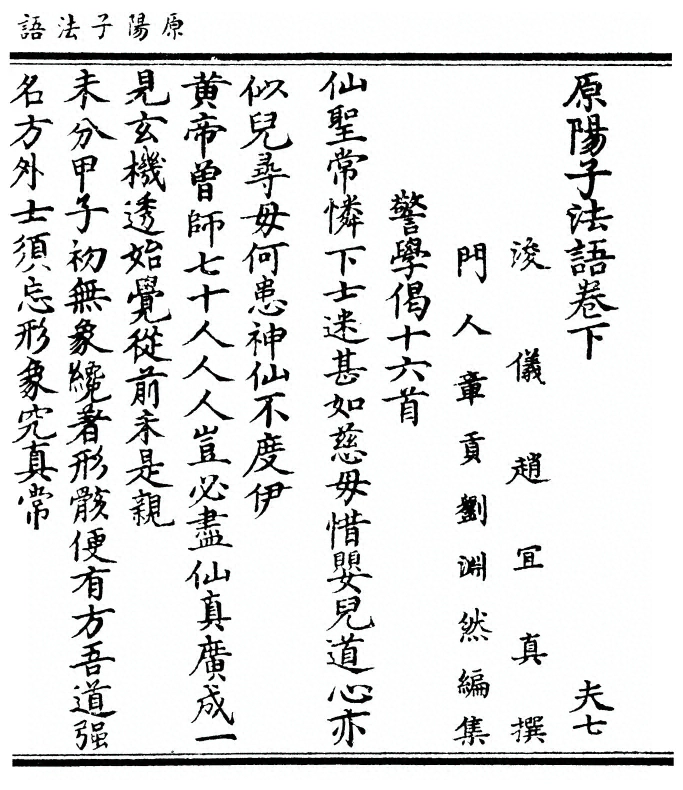 原陽子法語
原陽子法語卷下
夫七
浚儀趙宜真撰
門人章貢劉淵然編集
警學偈十六首
仙聖常憐下士迷甚如慈母惜嬰兒道心亦
似兒尋母何患神仙不度伊
黃帝曾師七十人人人豈必盡仙真廣成一
見玄機透始覺從前未是親
未分甲子初無象纔著形骸便有方吾道强
名方外士須忘形象究真常